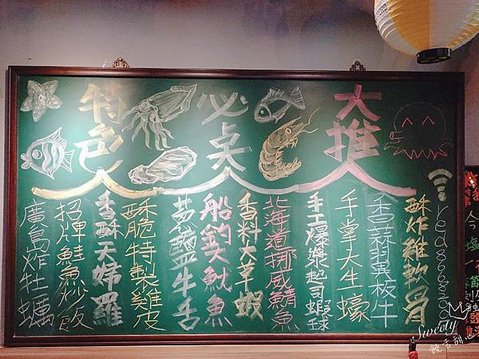 大推
必点
特色
酥炸雞軟骨
香蒜翼板牛
手掌大生蠔
手工爆漿起司蝦球
北海道挪威鯖魚
香料大草蝦
船釣大魷魚
蔥鹽牛舌
酥脆特製雞皮
香酥天婦羅
招牌鮭魚炒飯
廣島炸牡蠣
Sweety